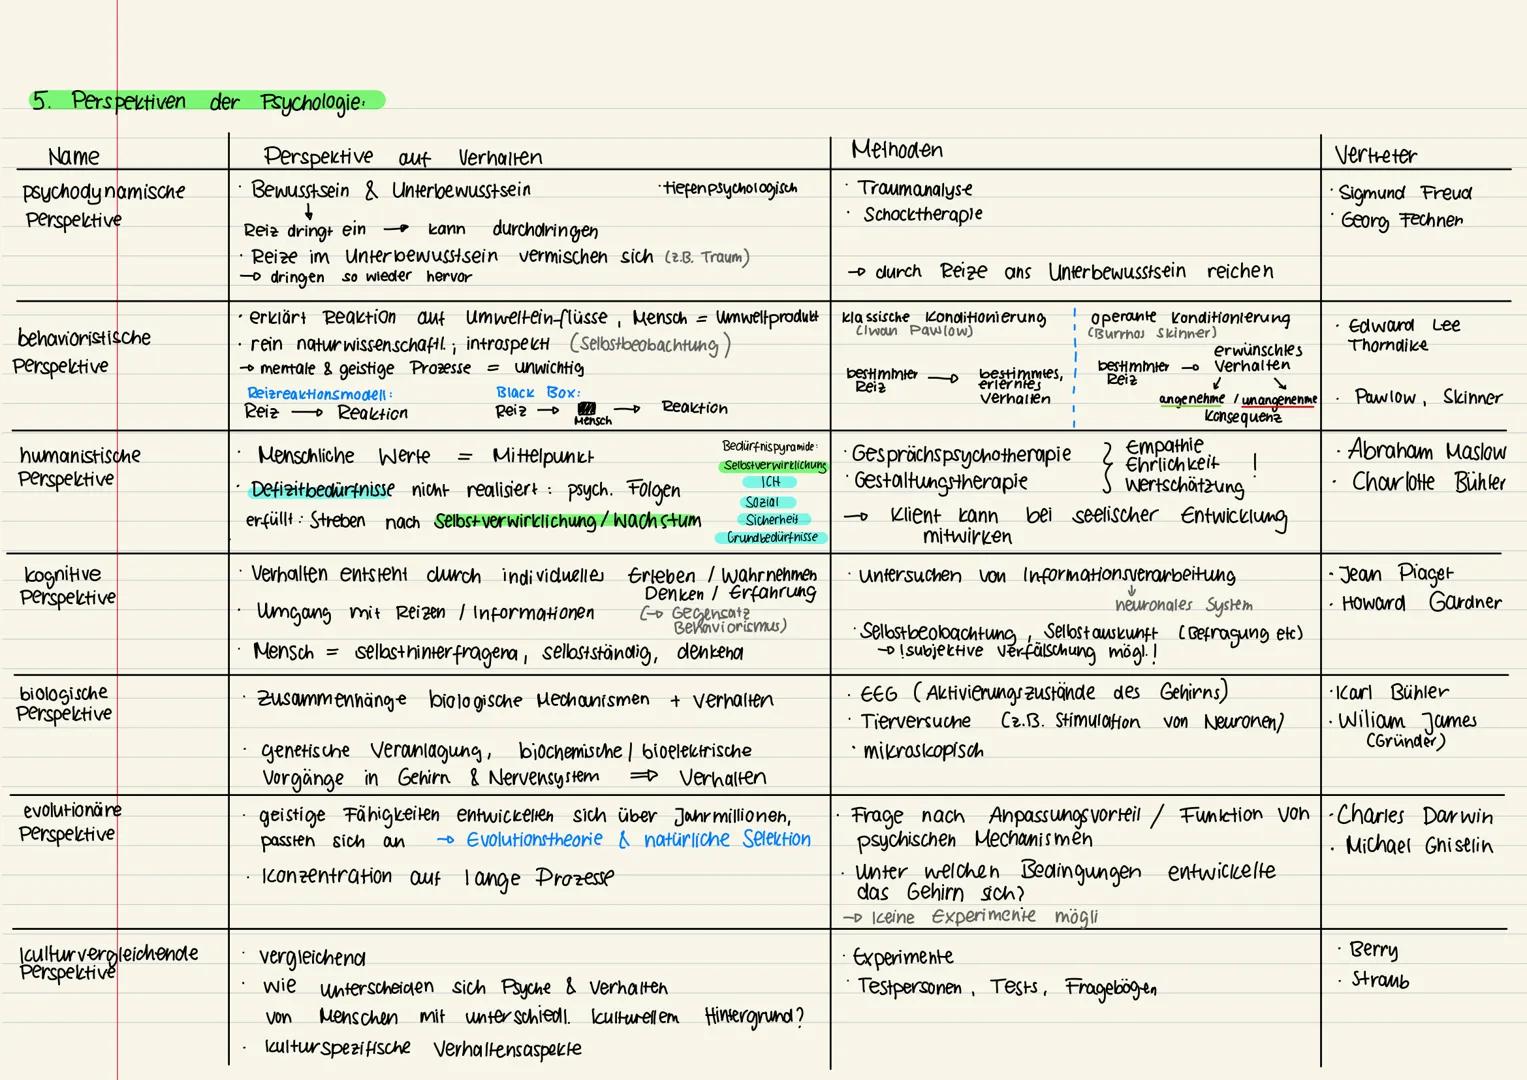 5. Perspektiven der Psychologie:
Name
Perspektive auf Verhalten
Methoden
Vertreter
psychodynamische
Perspektive
· Bewusstsein & Unterbewusstsein
· tiefenpsychologisch
↓
Reiz dringt ein → kann durchdringen
· Reize im Unterbewusstsein vermischen sich (z.B. Traum)
→ dringen so wieder hervor
· Traumanalyse
· Schocktherapie
→ durch Reize ans Unterbewusstsein reichen
· Sigmund Freud
· Georg Fechner
behavioristische
Perspektive
· erklärt Reaktion auf Umwelteinflüsse, Mensch = Umweltprodukt
· rein naturwissenschaftl.; introspekt (Selbstbeobachtung)
→ mentale & geistige Prozesse = unwichtig
Reizreaktionsmodell:
Reiz → Reaktion
Black Box:
Reiz → → Reaktion
Mensch
klassische Konditionierung
(Iwan Pawlow)
bestimmter → bestimmtes,
Reiz erlerntes
Verhalten
operante Konditionierung
(Burrhos Skinner)
erwünschtes
bestimmter → Verhalten
Reiz
angenehme / unangenehme
Konsequenz
· Edward Lee
Thorndike
· Pawlow, Skinner
humanistische
Perspektive
· Menschliche Werte = Mittelpunkt
· Defizitbedürfnisse nicht realisiert: psych. Folgen
erfüllt: Streben nach Selbstverwirklichung/Wachstum
Bedürfnispyramide:
Selbstverwirklichung
ICH
Sozial
Sicherheit
Grundbedürfnisse
· Gesprächspsychotherapie
· Gestaltungstherapie
Empathie
Ehrlichkeit !
Wertschätzung
→ Klient kann bei seelischer Entwicklung
mitwirken
· Abraham Maslow
· Charlotte Bühler
kognitive
Perspektive
· Verhalten entsteht durch individuelles Erleben / Wahrnehmen
Denken / Erfahrung
· Umgang mit Reizen / Informationen (→ Gegensatz
Behaviorismus)
· Mensch = selbsthinterfragend, selbstständig, denkend
· untersuchen von Informationsverarbeitung
↓
neuronales System
· Selbstbeobachtung, Selbstauskunft (Befragung etc)
→ !subjektive Verfälschung mögl.!
· Jean Piaget
· Howard Gardner
biologische
Perspektive
· Zusammenhänge biologische Mechanismen + Verhalten
· genetische Veranlagung, biochemische / bioelektrische
Vorgänge in Gehirn & Nervensystem ⇒ Verhalten
· EEG (Aktivierungszustände des Gehirns)
· Tierversuche (z.B. Stimulation von Neuronen)
· mikroskopisch
· Karl Bühler
· Wiliam James
(Gründer)
evolutionäre
Perspektive
· geistige Fähigkeiten entwickelten sich über Jahrmillionen,
passten sich an → Evolutionstheorie & natürliche Selektion
· Konzentration auf lange Prozesse
· Frage nach Anpassungsvorteil / Funktion von
psychischen Mechanismen
· Unter welchen Bedingungen entwickelte
das Gehirn sich?
→ keine Experimente mögli
· Charles Darwin
· Michael Ghiselin
kulturvergleichende
Perspektive
· vergleichend
· wie unterscheiden sich Psyche & Verhalten
von Menschen mit unterschiedl. kulturellem Hintergrund?
· kulturspezifische Verhaltensaspekte
· Experimente
· Testpersonen, Tests, Fragebögen
· Berry
· Straub